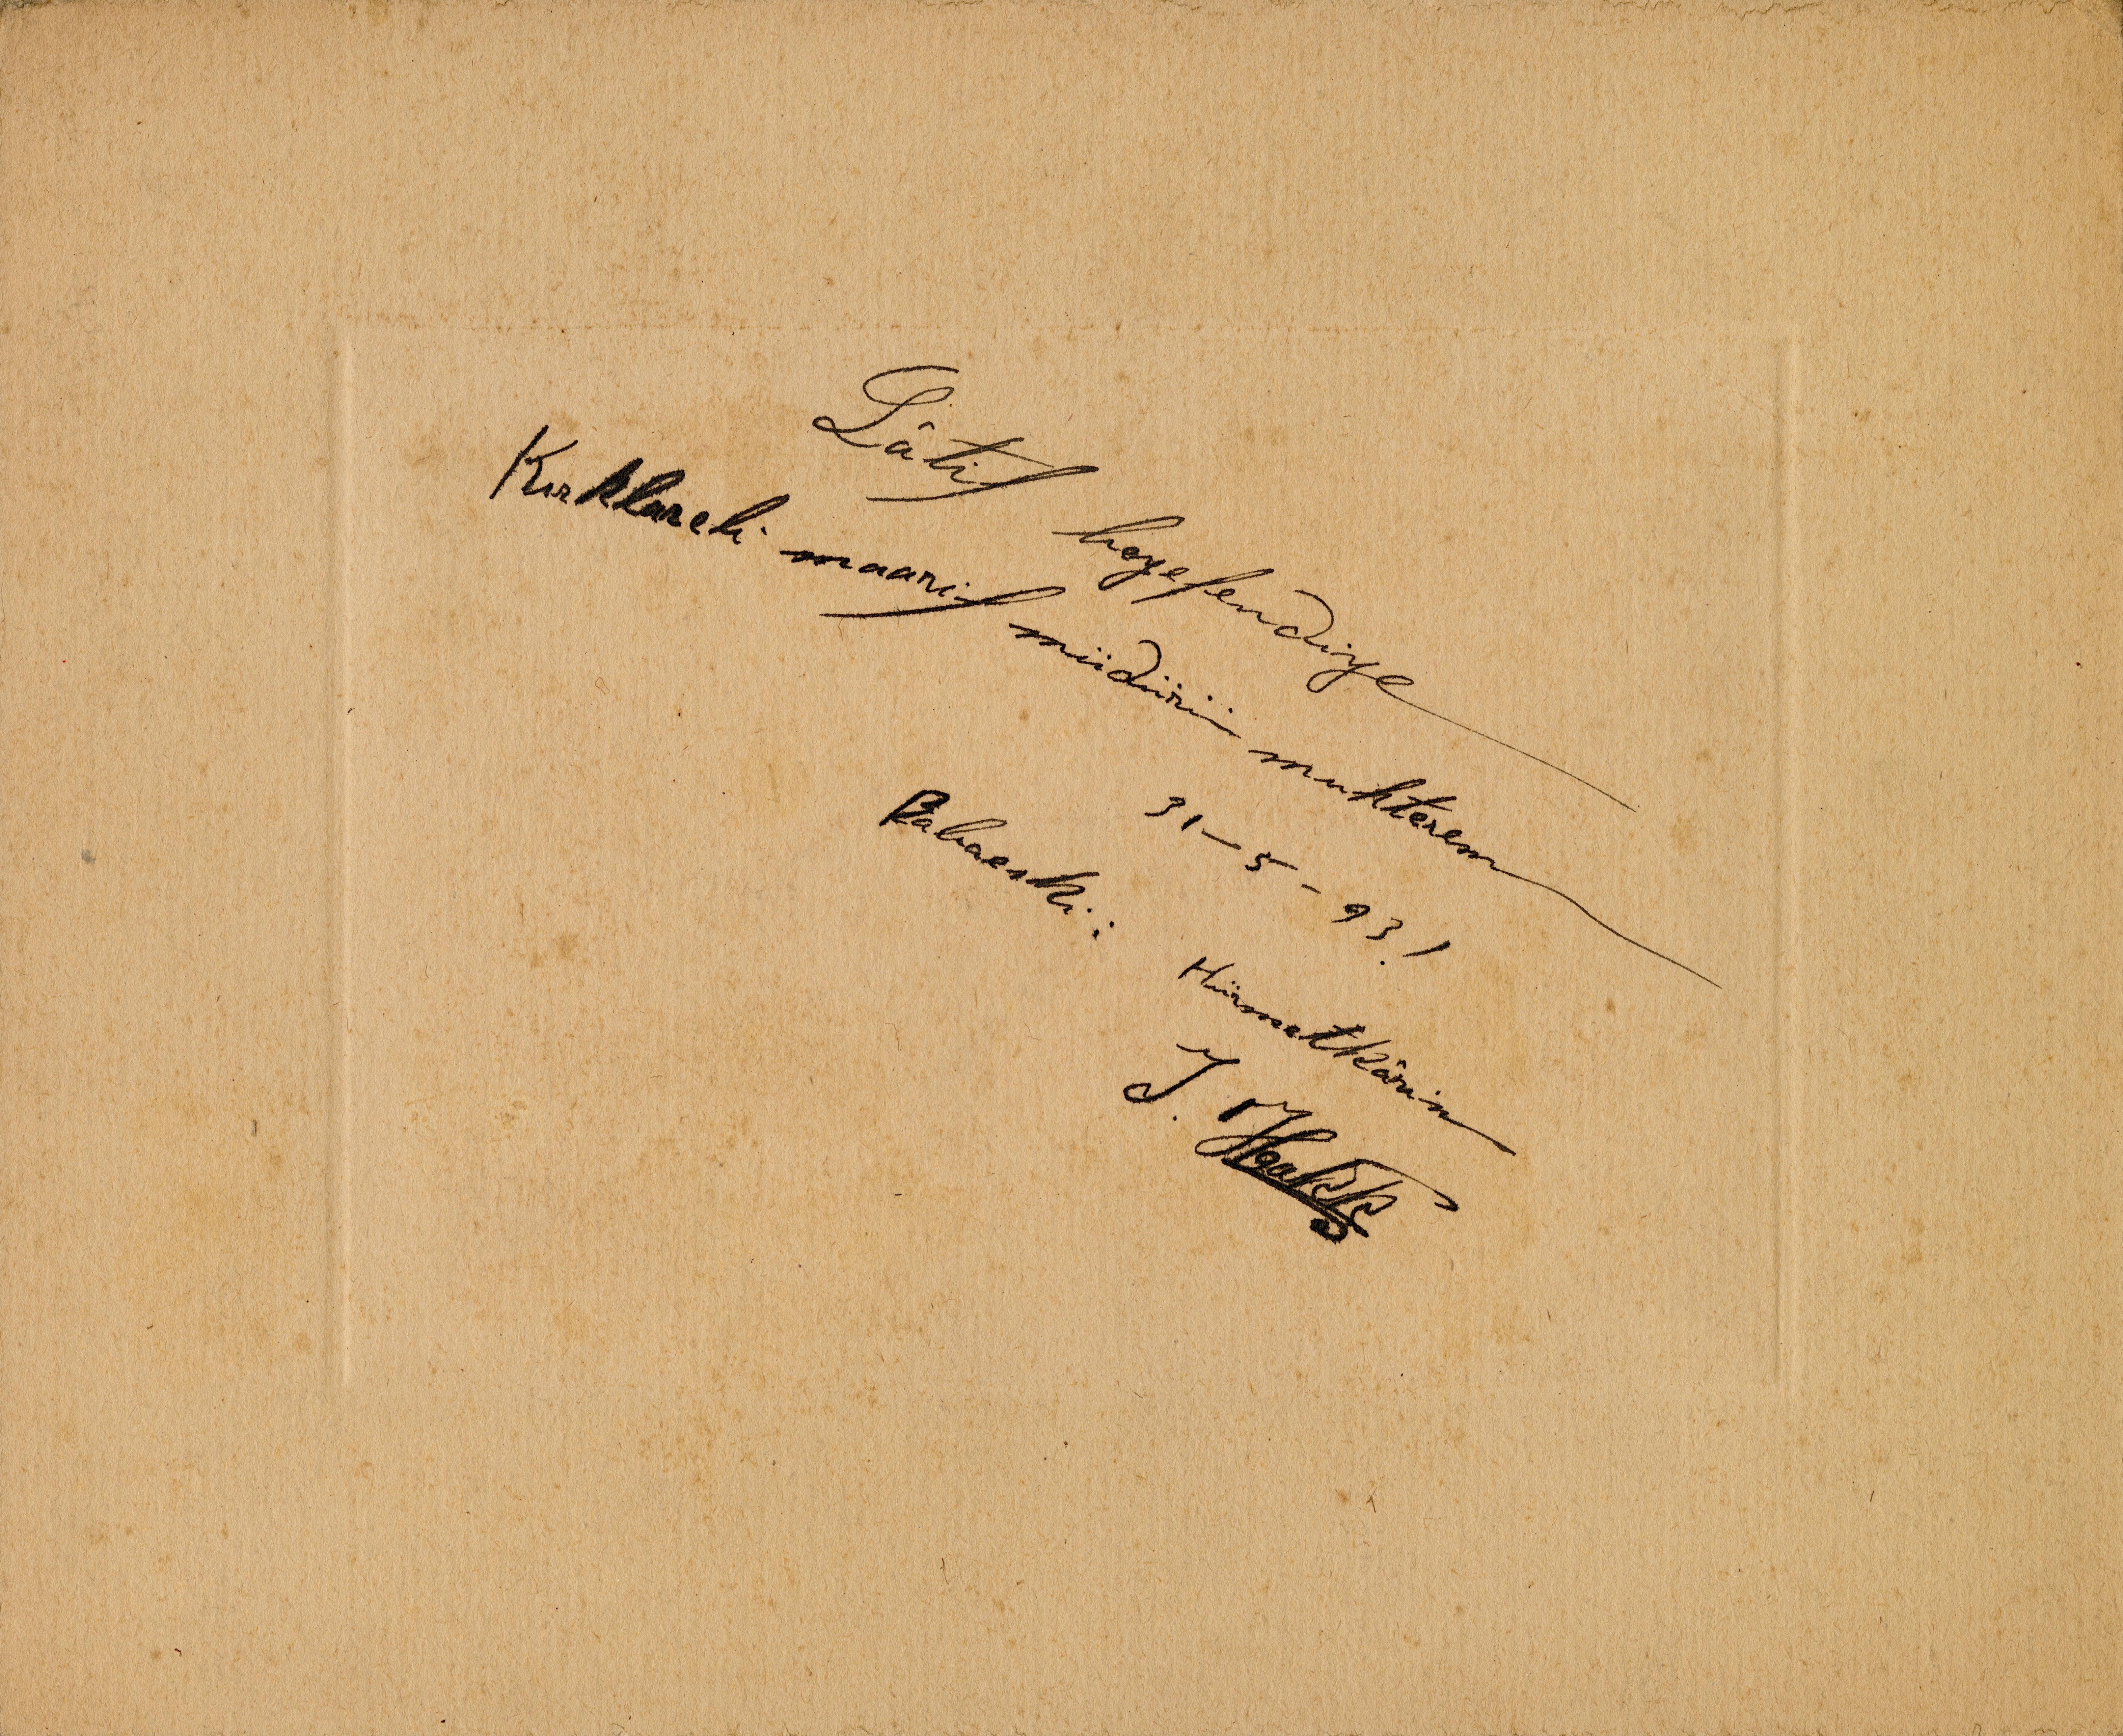 Kırklareli maarif müdürü muhterem
Lâtif beyefendiye
Babaeski: 31-5-931
Hürmetkârın
İ. Hakkı